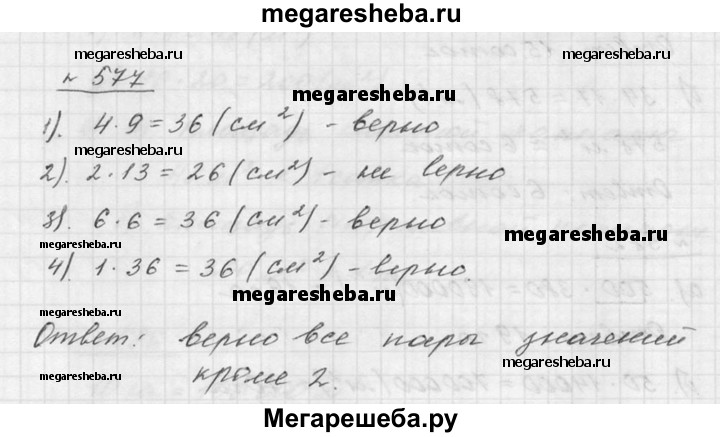 megaresheba.ru
megaresheba.ru
№ 577
megaresheba.ru
1). 4·9=36 (см²) - верно
megaresheba.ru
2). 2·13=26 (см²) - не верно
3). 6·6=36 (см²) - верно
megaresheba.ru
megaresheba.ru
4). 1·36=36 (см²) - верно
megaresheba.ru
Ответ: верно все пары значений
кроме 2.
megaresheba.ru
megaresheba.ru
Мегарешеба.ру